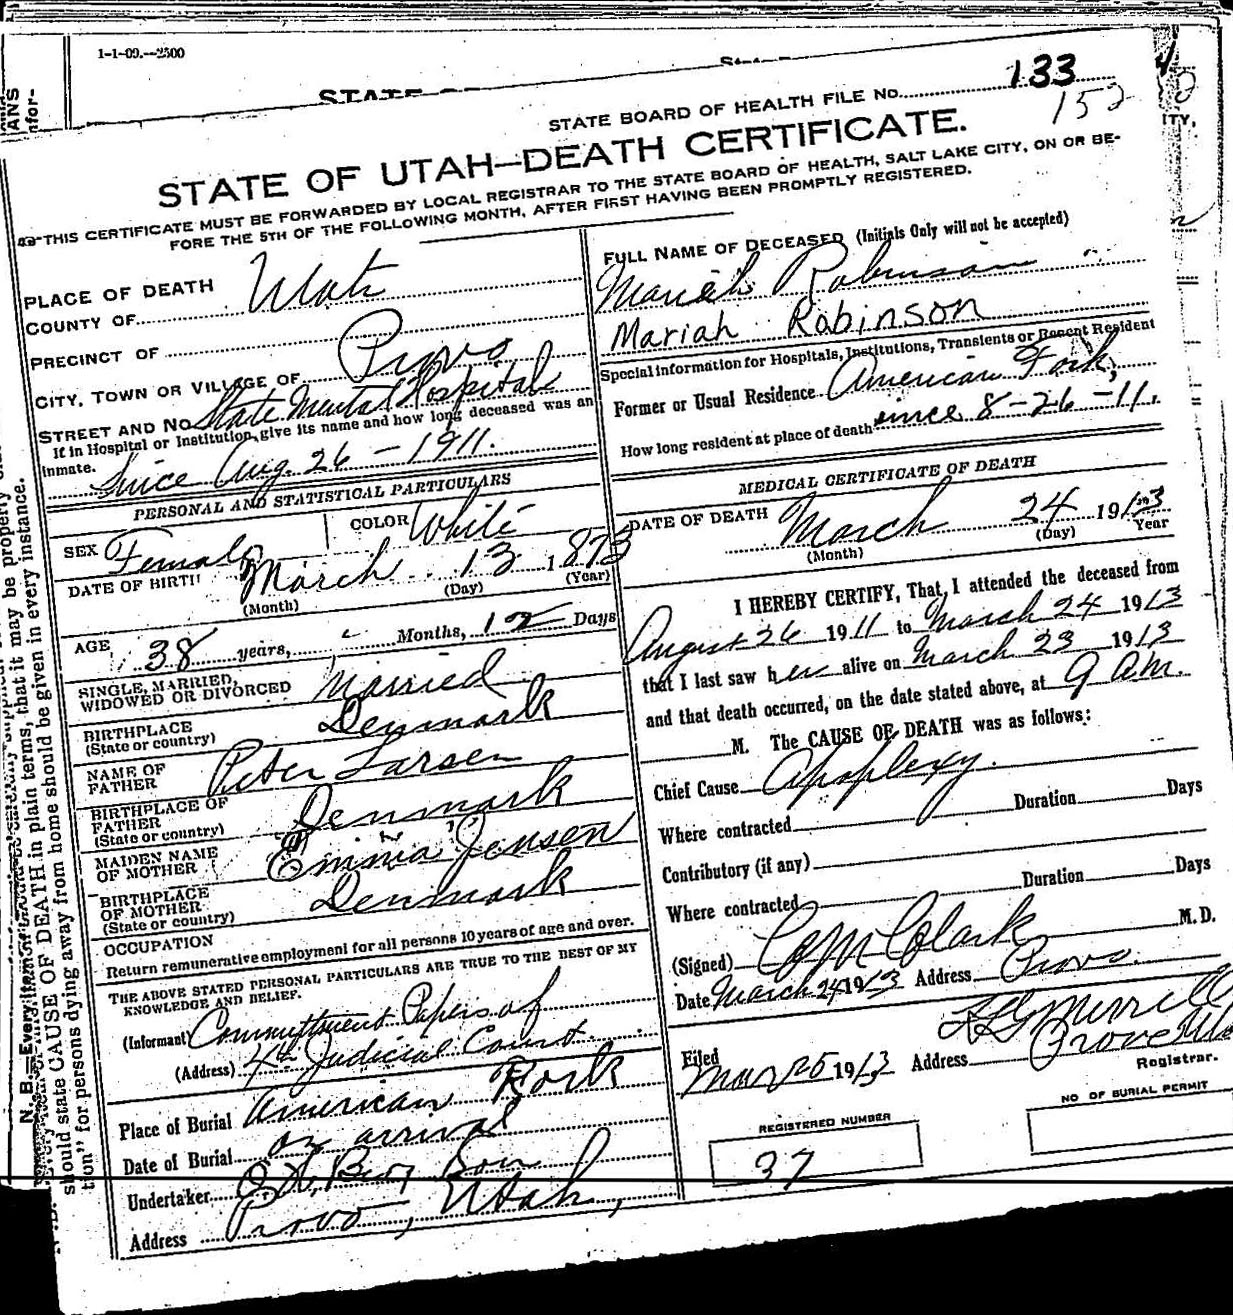 1-1-09.--2500
STATE BOARD OF HEALTH FILE No. 133
152
STATE OF UTAH—DEATH CERTIFICATE.
THIS CERTIFICATE MUST BE FORWARDED BY LOCAL REGISTRAR TO THE STATE BOARD OF HEALTH, SALT LAKE CITY, ON OR BE-
FORE THE 5TH OF THE FOLLOWING MONTH, AFTER FIRST HAVING BEEN PROMPTLY REGISTERED.
PLACE OF DEATH
COUNTY OF Utah
PRECINCT OF
CITY, TOWN OR VILLAGE OF Provo
STREET AND No. State Mental Hospital
If in Hospital or Institution, give its name and how long deceased was an
inmate. Since Aug. 26 - 1911.
PERSONAL AND STATISTICAL PARTICULARS
SEX Female COLOR White
DATE OF BIRTH March 13 1873
(Month) (Day) (Year)
AGE 38 years, Months, 12 Days
SINGLE, MARRIED,
WIDOWED OR DIVORCED Married
BIRTHPLACE
(State or country) Denmark
NAME OF
FATHER Peter Larsen
BIRTHPLACE OF
FATHER
(State or country) Denmark
MAIDEN NAME
OF MOTHER Emma Jensen
BIRTHPLACE
OF MOTHER
(State or country) Denmark
OCCUPATION
Return remunerative employment for all persons 10 years of age and over.
THE ABOVE STATED PERSONAL PARTICULARS ARE TRUE TO THE BEST OF MY
KNOWLEDGE AND BELIEF.
(Informant) Committment Papers of
(Address) 4th Judicial Court.
Place of Burial American Fork
Date of Burial on arrival
Undertaker
Address Provo, Utah,
FULL NAME OF DECEASED (Initials Only will not be accepted)
Mariah Robinson
Mariah Robinson
Special information for Hospitals, Institutions, Transients or Recent Resident
Former or Usual Residence American Fork,
How long resident at place of death since 8-26-11.
MEDICAL CERTIFICATE OF DEATH
DATE OF DEATH March 24 1913
(Month) (Day) Year
I HEREBY CERTIFY, That, I attended the deceased from
August 26 1911 to March 24 1913
that I last saw her alive on March 23 1913
and that death occurred, on the date stated above, at 9 AM.
M. The CAUSE OF DEATH was as follows:
Chief Cause Apoplexy.
Duration Days
Where contracted
Contributory (if any)
Duration Days
Where contracted
(Signed) Clark M.D.
Date March 24 1913 Address Provo.
Merrill
Filed
Mar 25 1913 Address Provo
Registrar.
REGISTERED NUMBER
37
NO OF BURIAL PERMIT
should state CAUSE OF DEATH in plain terms, that it may be properly
tion" for persons dying away from home should be given in every instance.